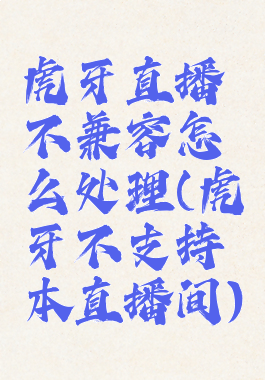 虎牙直播
不兼容怎
么处理(虎
牙不支持
本直播间)